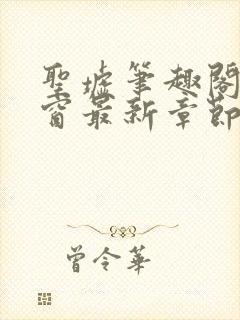 聖墟筆趣閣
窗最新章節
曾令華